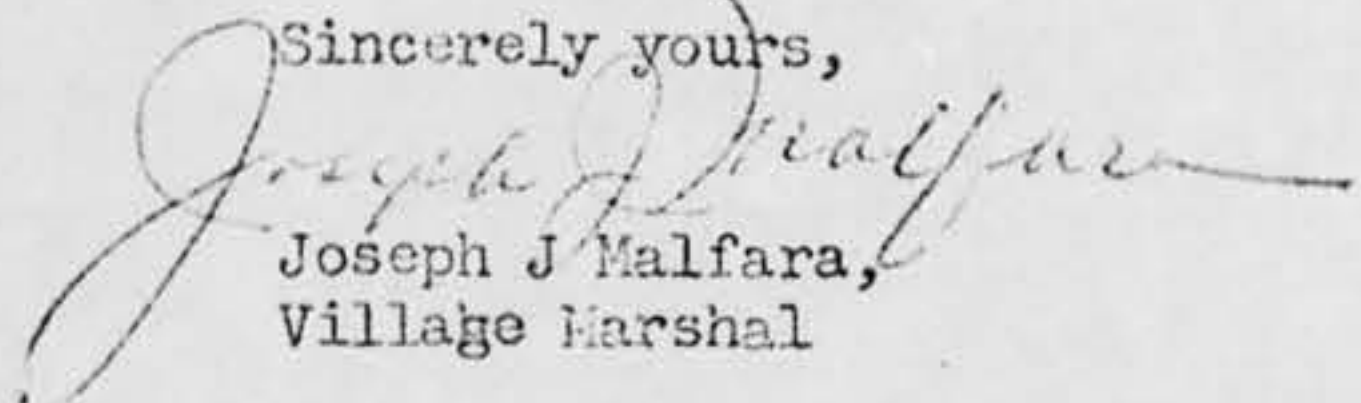 Sincerely yours,
Joseph J Malfara
Joseph J Malfara,
Village Marshal